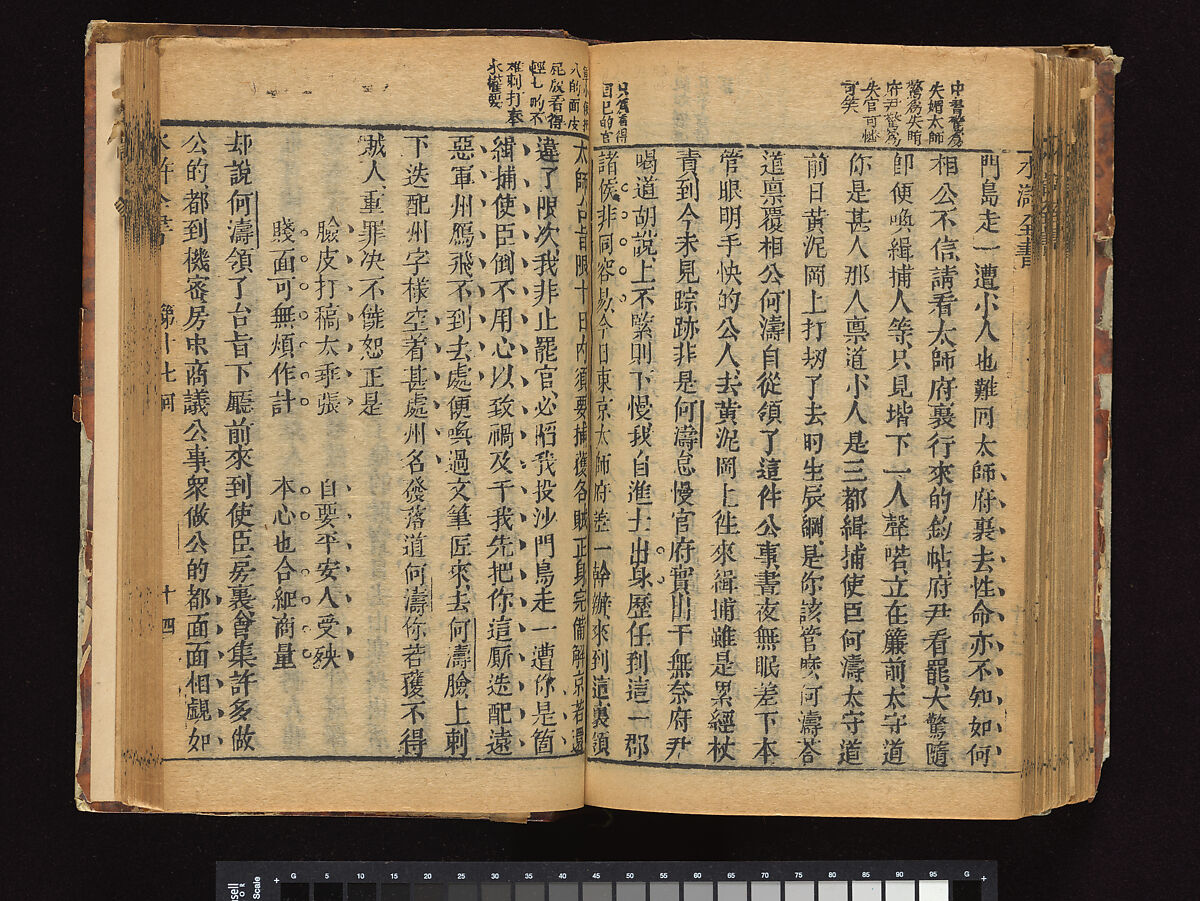 水滸全書
中書驚為
失媚太師
府尹驚為
失官可憐
可笑
門島走一遭小人也難回太師府裏去性命亦不知如何
相公不信請看太師府裏行來的鈞帖府尹看罷大驚隨
即便喚緝捕人等只見堦下一人聲喏立在簾前太守道
你是甚人那人禀道小人是三都緝捕使臣何濤太守道
前日黃泥岡上打刼了去的生辰綱是你該管麽何濤答
道禀覆相公何濤自從領了這件公事晝夜無眠差下本
管眼明手快的公人去黃泥岡上徃來緝捕雖是累經杖
責到今未見踪跡非是何濤怠慢官府實出于無奈府尹
只為看得
自己的官
喝道胡說上不緊則下慢我自進士出身歷任到這一郡
諸侯非同容易今日東京太師府差一幹辦來到這裏領
太師台旨限十日內須要捕獲各賊正身完備解京若還
違了限次我非止罷官必陷我投沙門島走一遭你是箇
緝捕使臣倒不用心以致禍及于我先把你這厮迭配遠
惡軍州鴈飛不到去處便喚過文筆匠來去何濤臉上刺
下迭配州字樣空着甚處州名發落道何濤你若獲不得
賊人重罪决不饒恕正是
臉皮打稿太乖張　自要平安人受殃
賤面可無煩作計　本心也合細商量
却說何濤領了台旨下廳前來到使臣房裏會集許多做
公的都到機密房中商議公事衆做公的都面面相覷如
水滸全書　第十七回　十四